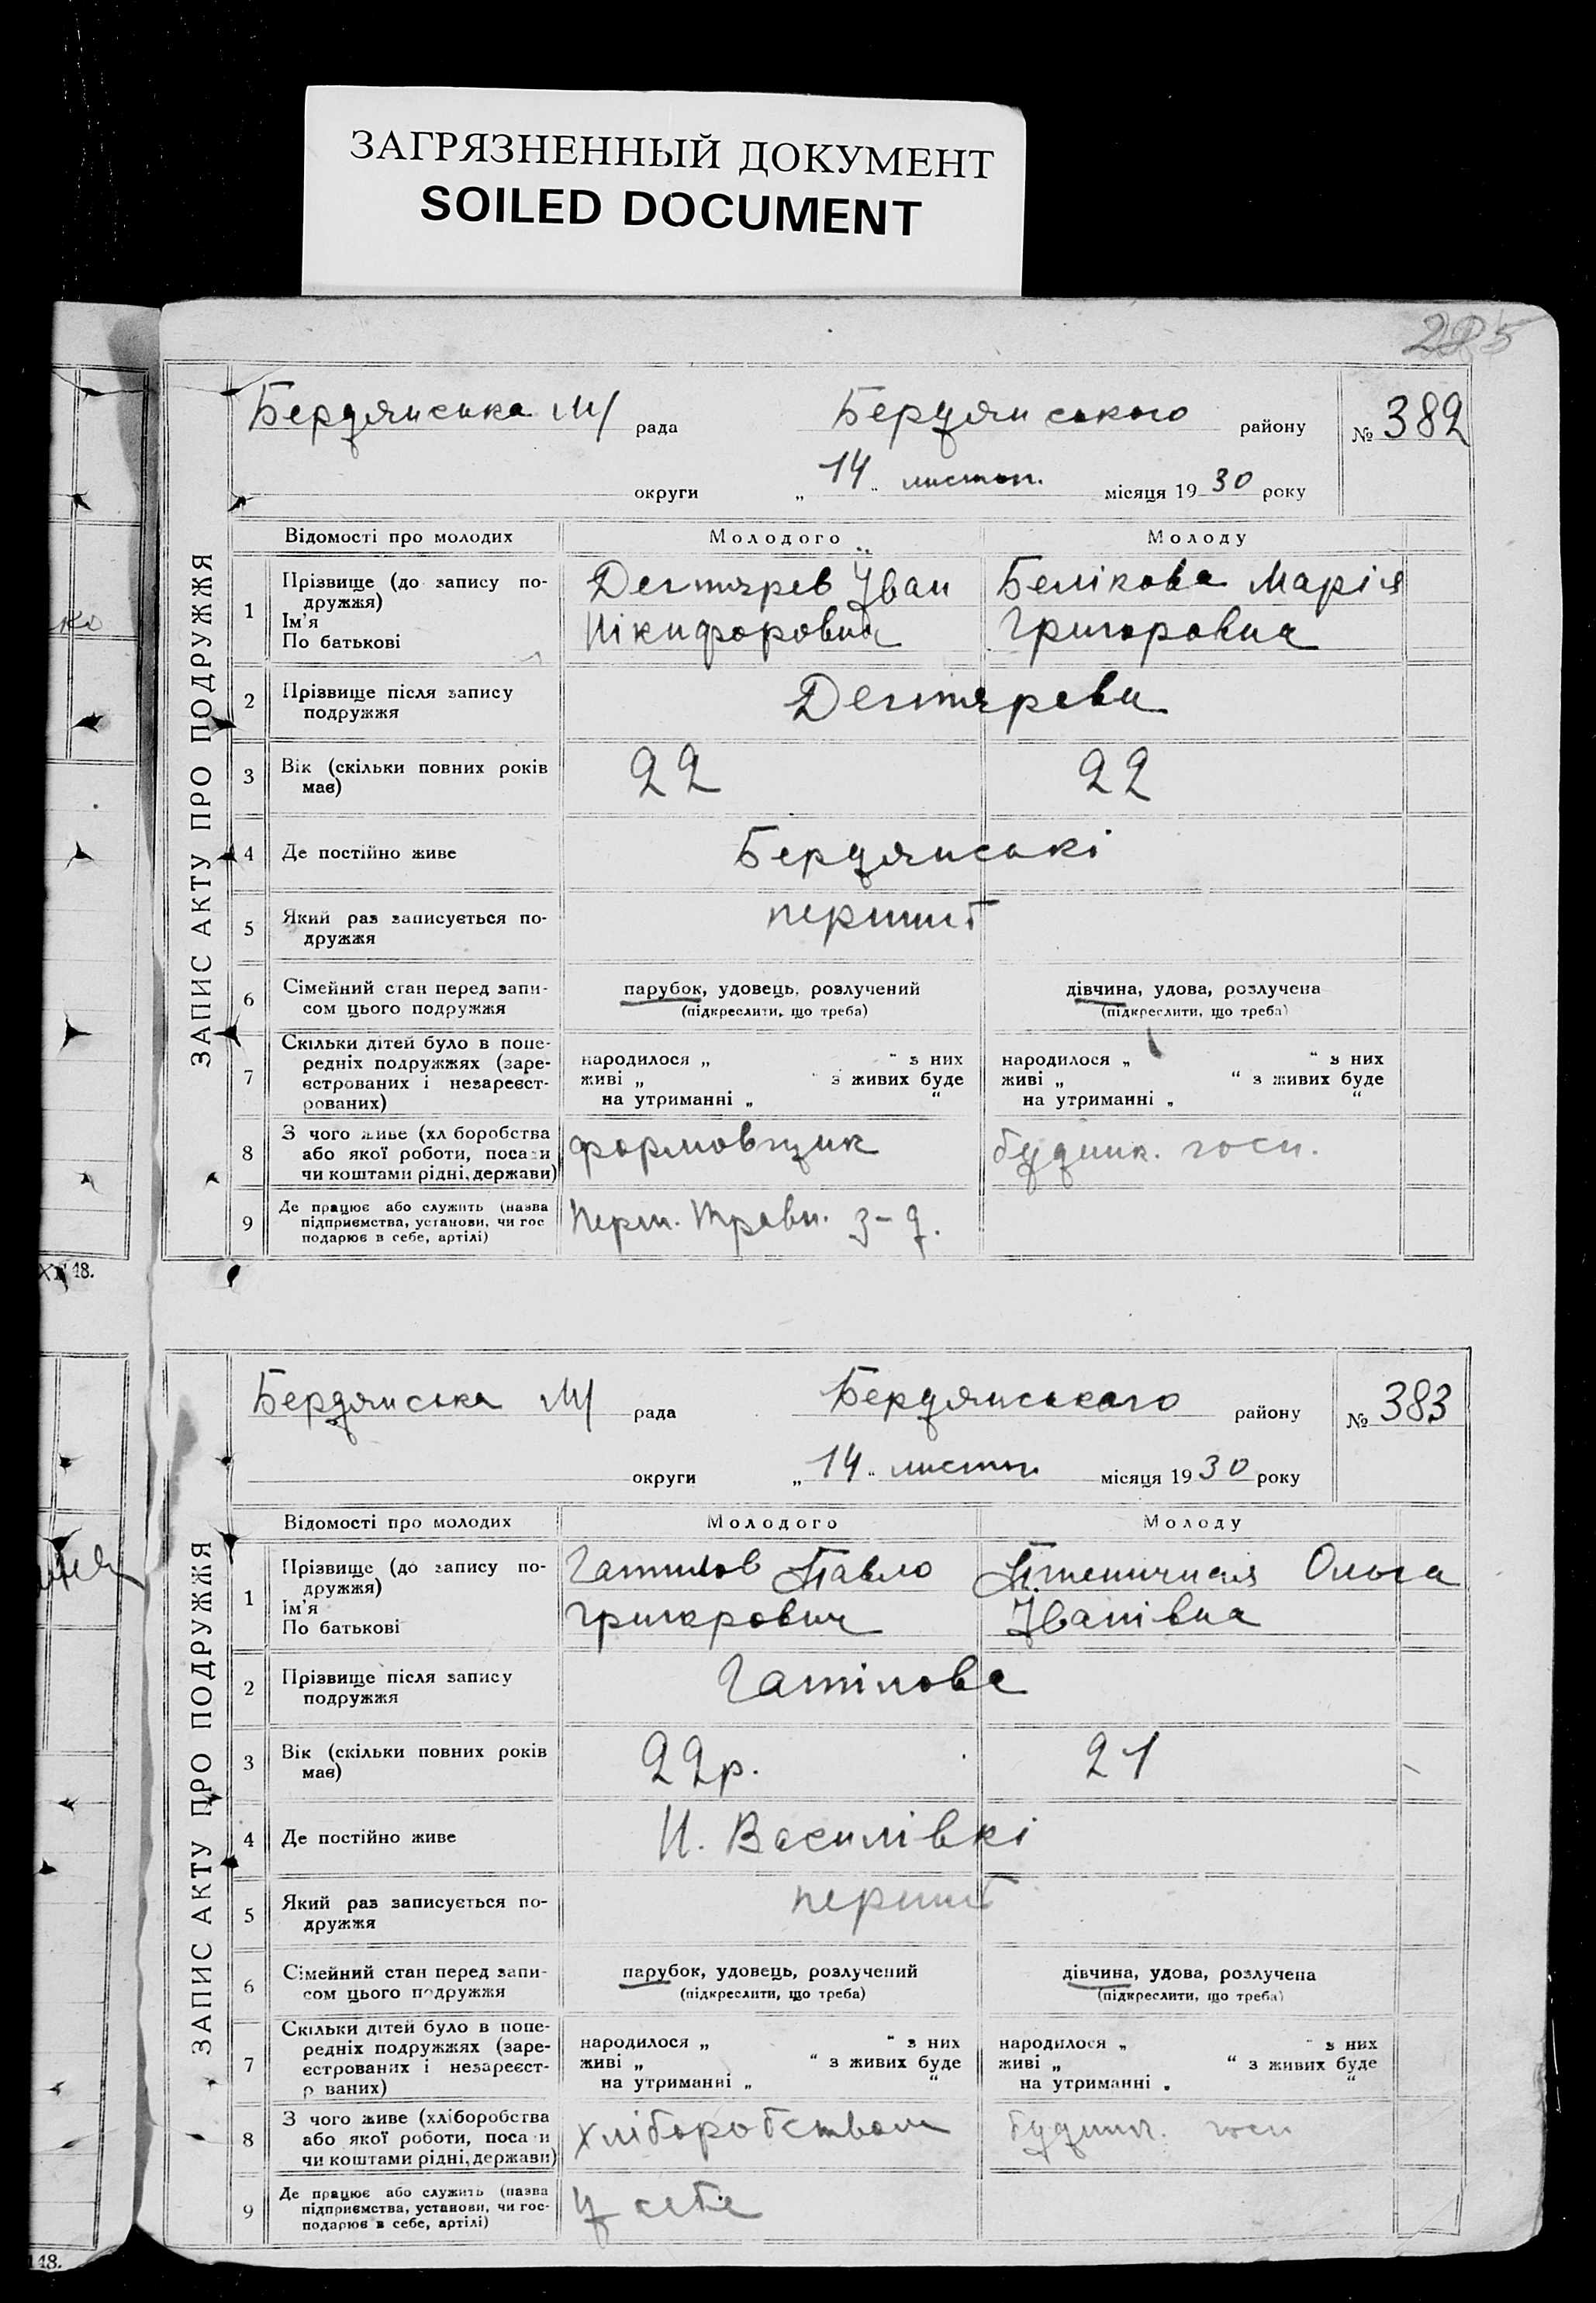 ЗАГРЯЗНЕННЫЙ ДОКУМЕНТ
SOILED DOCUMENT
285
ЗАПИС АКТУ ПРО ПОДРУЖЖЯ
Бердянська М/ рада Бердянського району № 382
округи „14“ листоп. місяця 1930 року
Відомості про молодих Молодого Молоду
1 Прізвище (до запису по-
дружжя)
Ім'я
По батькові
Дегтярев Іван
Нікифорович
Белікова Марія
Григоровна
2 Прізвище після запису
подружжя
Дегтяреви
3 Вік (скільки повних років
має)
22 22
4 Де постійно живе Бердянські
5 Який раз записується по-
дружжя
перший
6 Сімейний стан перед запи-
сом цього подружжя
парубок, удовець, розлучений
(підкреслити, що треба)
дівчина, удова, розлучена
(підкреслити, що треба)
7 Скільки дітей було в попе-
редніх подружжях (заре-
єстрованих і незареєст-
рованих)
народилося „ “ з них
живі „ “ з живих буде
на утриманні „ “
народилося „ “ з них
живі „ “ з живих буде
на утриманні „ “
8 З чого живе (хл боробства
або якої роботи, поса и
чи коштами рідні, держави)
формовщик
будинк. госп.
9 Де працює або служить (назва
підприємства, установи, чи гос
подарює в себе, артілі)
Перш. Травн. з-д.
18.
ЗАПИС АКТУ ПРО ПОДРУЖЖЯ
Бердянська М/ рада Бердянського району № 383
округи „14“ листоп. місяця 1930 року
Відомості про молодих Молодого Молоду
1 Прізвище (до запису по-
дружжя)
Ім'я
По батькові
Гатилов Павло
Григорович
Ольга
Іванівна
2 Прізвище після запису
подружжя
Гатілова
3 Вік (скільки повних років
має)
22р. 21
4 Де постійно живе Н. Василівкі
5 Який раз записується по-
дружжя
перший
6 Сімейний стан перед запи-
сом цього подружжя
парубок, удовець, розлучений
(підкреслити, що треба)
дівчина, удова, розлучена
(підкреслити, що треба)
7 Скільки дітей було в попе-
редніх подружжях (заре-
єстрованих і незареєст-
р ваних)
народилося „ “ з них
живі „ “ з живих буде
на утриманні „ “
народилося „ “ з них
живі „ “ з живих буде
на утриманні „ “
8 З чого живе (хліборобства
або якої роботи, поса и
чи коштами рідні, держави)
хліборобством
будинк. госп
9 Де працює або служить (назва
підприємства, установи, чи гос-
подарює в себе, артілі)
У себе
148.